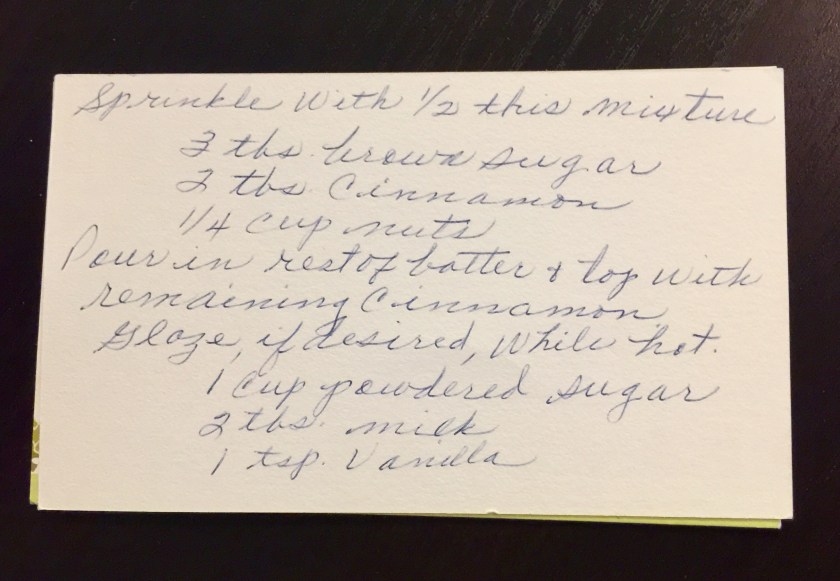 Sprinkle With 1/2 this mixture
3 tbs brown sugar
2 tbs. Cinnamon
1/4 cup nuts
Pour in rest of batter & top with
remaining Cinnamon
Glaze, if desired, While hot.
1 cup powdered sugar
2 tbs. milk
1 tsp. Vanilla